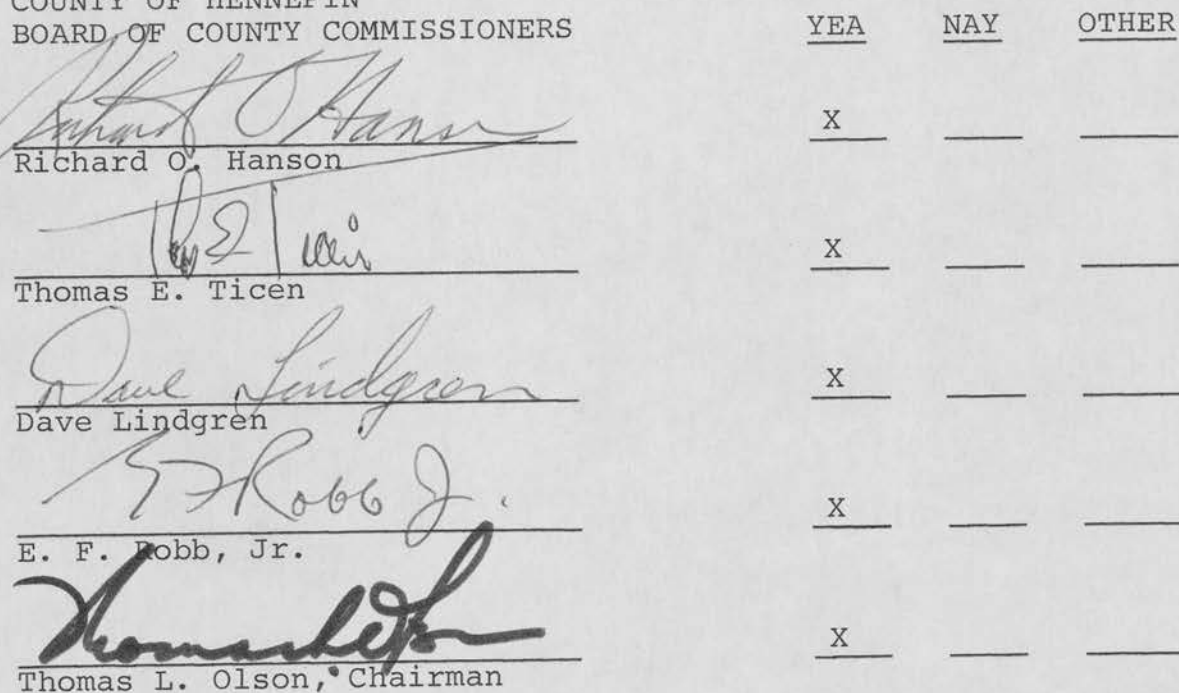 COUNTY OF HENNEPIN
BOARD OF COUNTY COMMISSIONERS YEA NAY OTHER
Richard O Hanson
X
Richard O. Hanson
Thos E Ticen
X
Thomas E. Ticen
Dave Lindgren
X
Dave Lindgren
E F Robb Jr.
X
E. F. Robb, Jr.
Thomas L Olson
X
Thomas L. Olson, Chairman